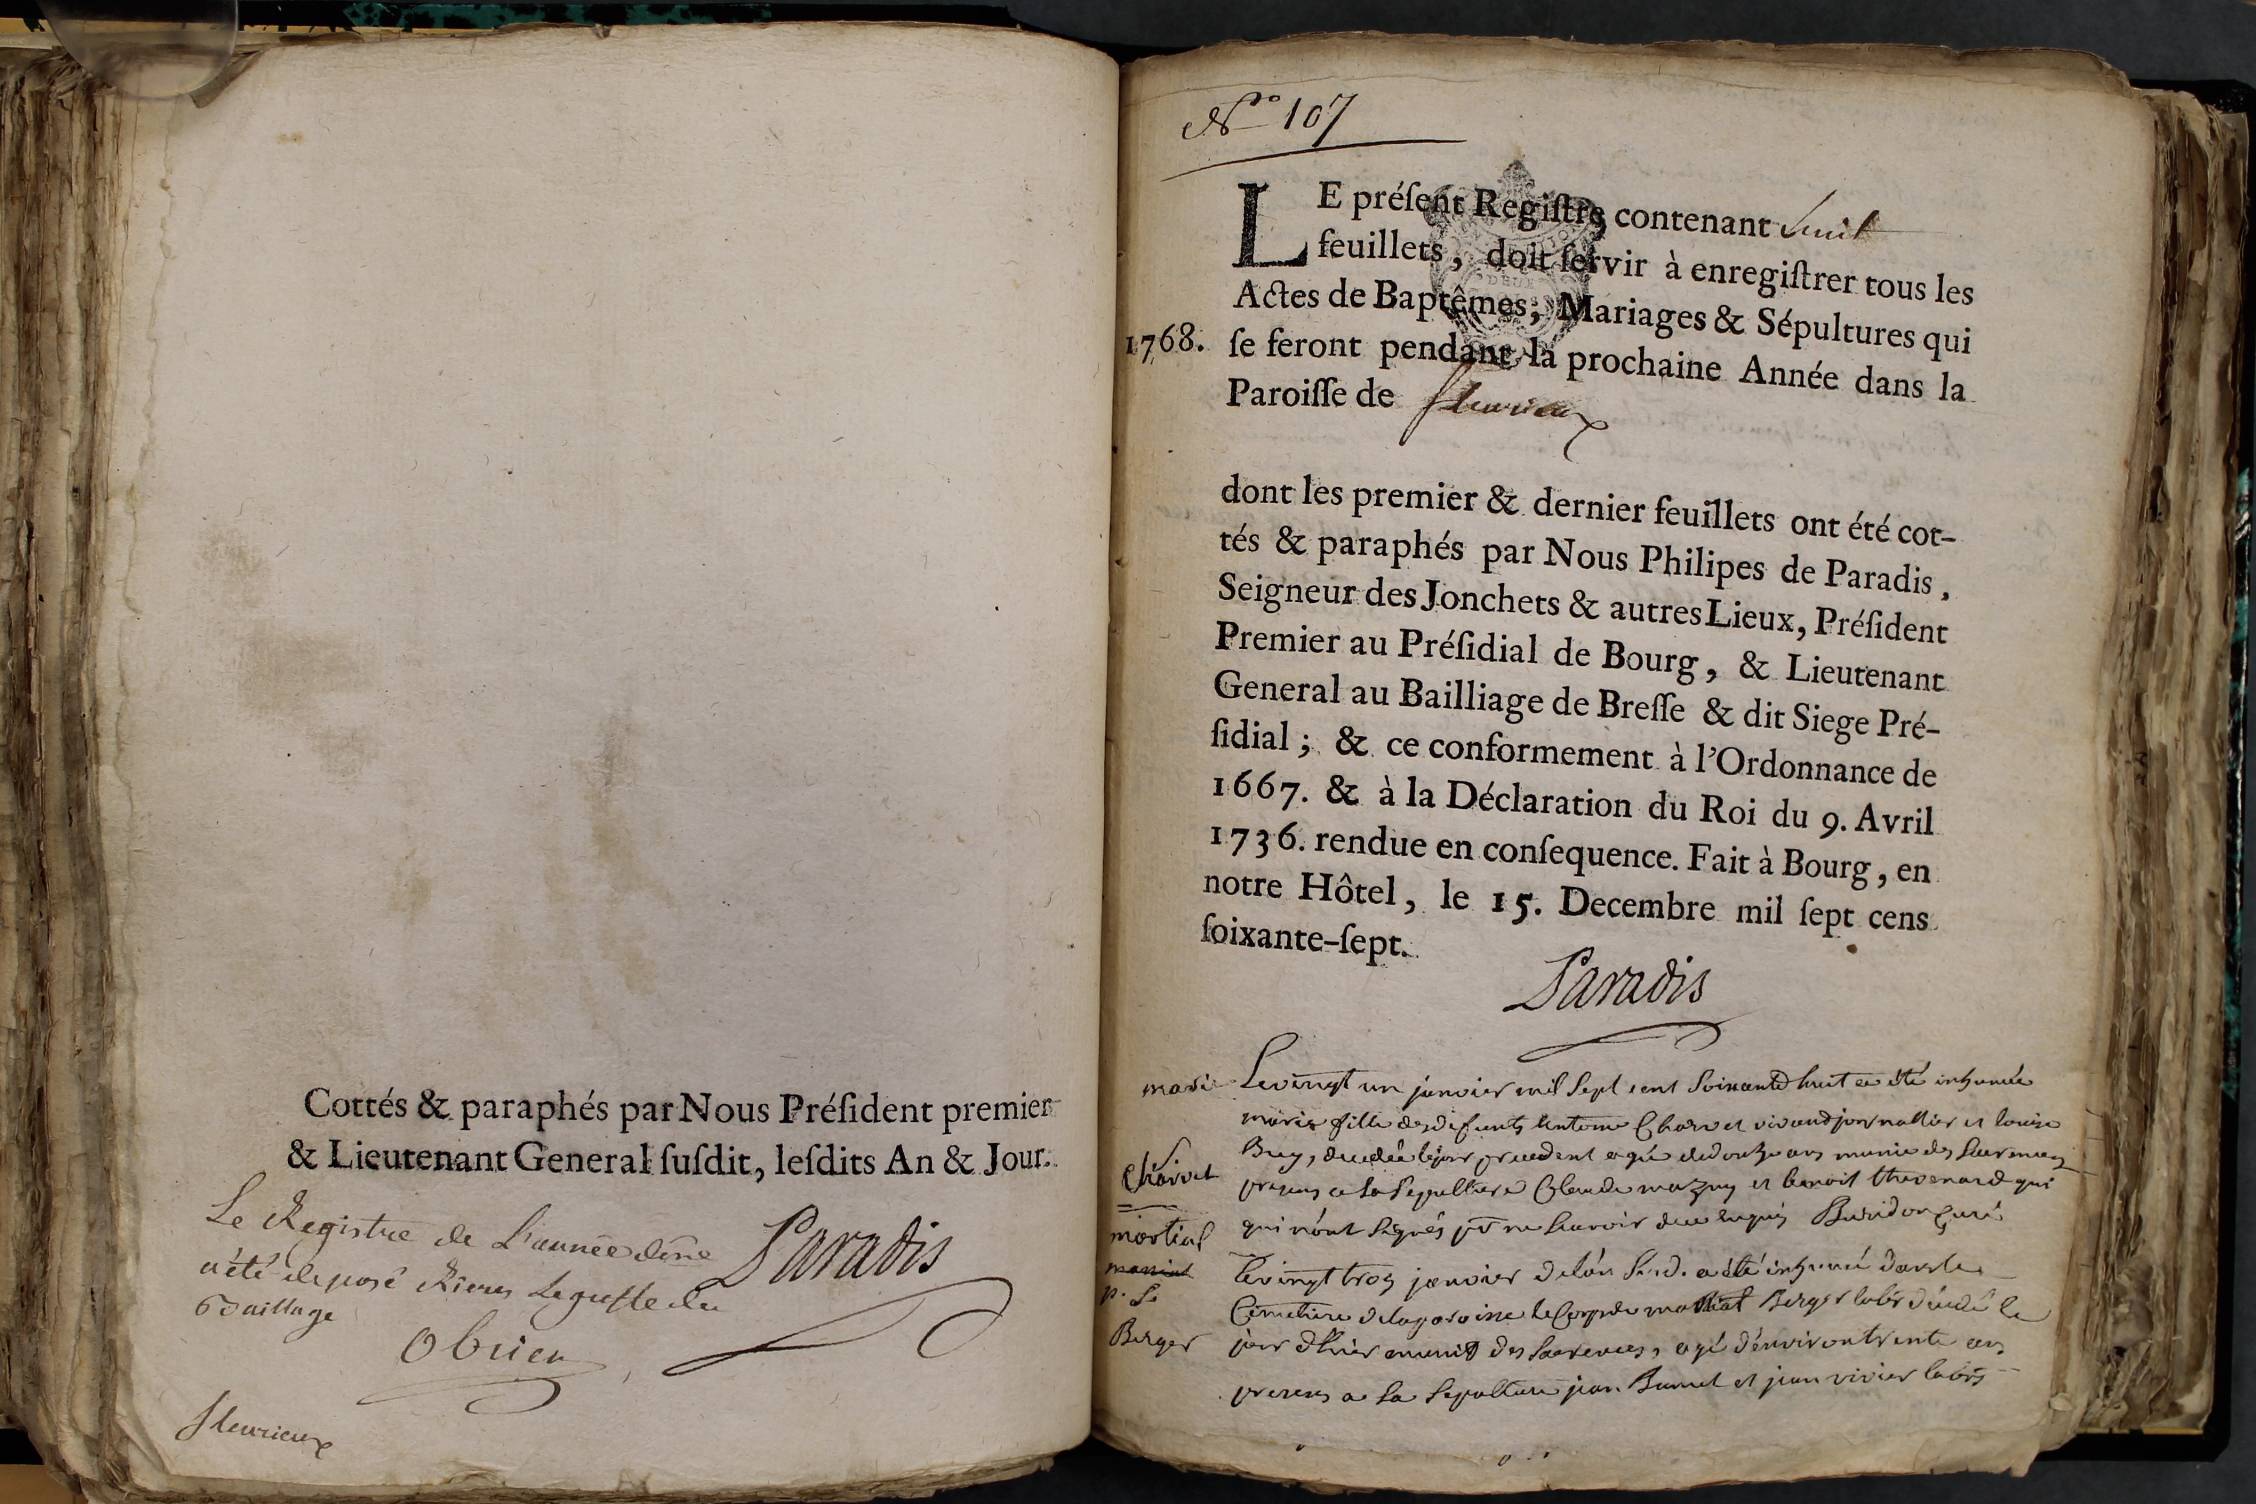 Cottés & paraphés par Nous Préſident premier
& Lieutenant General ſuſdit, leſdits An & Jour.
Le Registre de L'année dere
a été deposé Rieres Le greffe du
Bailliage
Paradis
Obrien
fleurieux
No 107
LE préſent Regiſtre contenant huit
feuillets, doit ſervir à enregiſtrer tous les
Actes de Baptêmes, Mariages & Sépultures qui
1768. ſe feront pendant la prochaine Année dans la
Paroiſſe de fleurieux
dont les premier & dernier feuillets ont été cot-
tés & paraphés par Nous Philipes de Paradis,
Seigneur des Jonchets & autres Lieux, Préſident
Premier au Préſidial de Bourg, & Lieutenant
General au Bailliage de Breſſe & dit Siege Pré-
ſidial; & ce conformement à l'Ordonnance de
1667. & à la Déclaration du Roi du 9. Avril
1736. rendue en conſequence. Fait à Bourg, en
notre Hôtel, le 15. Decembre mil ſept cens
ſoixante-ſept.
Paradis
marie
Charvet
Le vingt un janvier mil sept cent soixante huit a été inhumée
marie fille des defunts Antoine Charvet vivand journallier et louise
Buy, decedée le jour precedent agée de douze ans munie des sacremens
presens a la sepulture Claude mazuy et benoit thevenard qui
qui n'ont signés pr ne scavoir de ce enquis Buridon Curé
martial
p. Se
Berger
Le vingt trois janvier de l'an susd. a été inhumé dans le
Cimetiere de la paroisse le Corps de martial Berger labr décédé le
jour d'hier munis des sacremens, agé d'environ trente ans
presens a la sepulture jean Brunet et jean vivier labrs